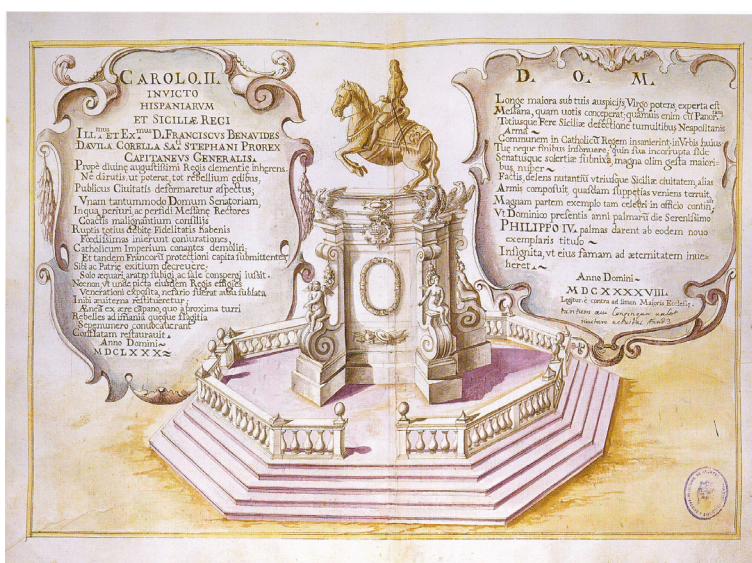 CAROLO. II.
INVICTO
HISPANIARVM
ET SICILIÆ REGI
ILL.mus ET EX.mus D. FRANCISCVS BENAVIDES
DAVILA CORELLA SA.ti STEPHANI PROREX
CAPITANEVS GENERALIS.
Propè diuinę augustissimi Regis clementię inhęrens.
Ne dirutis ut poterat, tot rebellium ędibus,
Publicus Ciuitatis deformaretur aspectus,
Vnam tantummodo Domum Senatoriam,
Inqua periuri, ac perfidi Messanę Rectores
Coactis malignantium consiliis
Ruptis totius debitę Fidelitatis habenis
Fœdissimas inierunt coniurationes,
Catholicum Imperium conantes demoliri
Et tandem Francorū protectioni capita submittentes
Sibi ac Patrię exitium decreuere,
Solo æquari, aratro subigi, ac sale conspergi iussit.
Necnon vt unde picta eiusdem Regis effigies
Venerationi exposita, nefario fuerat ausu sublata
Inibi æuiterna restitueretur;
Ænea ex ære cāpano, quo à proxima turri
Rebelles ad immania queque flagitia
Sepenumero conuocauerant
Conflatam restaurauit.
Anno Domini
MDCLXXX
D. O. M.
Longe maiora sub tuis auspicijs Virgo potens experta est
Messana, quam uotis conceperat; quamuis enim cū
Totiusque Fere Siciliæ defectione tumultibus Neapolitanis
Arma
Communem in Catholicū Regem insanierint, in Vrbis huius
Tuę neque finibus infremuere, quin sua incorrupta fide
Senatusque solertiæ subnixa, magna olim gesta maiori-
bus, nuper
Factis, delens nutantiū vtriusque Siciliæ ciuitatem, alias
Armis composuit, quasdam suppetias veniens terruit,
Magnam partem exemplo tam celebri in officio contin.
Vt Dominico presentis anni palmarū die Serenissimo
PHILIPPO IV. palmas darent ab eodem nouo
exemplaris titulo
Insignita, vt eius famam ad æternitatem inue-
heret
Anno Domini
MDCXXXXVIII.
Legitur è contra ad limen Maioris Ecclesię.